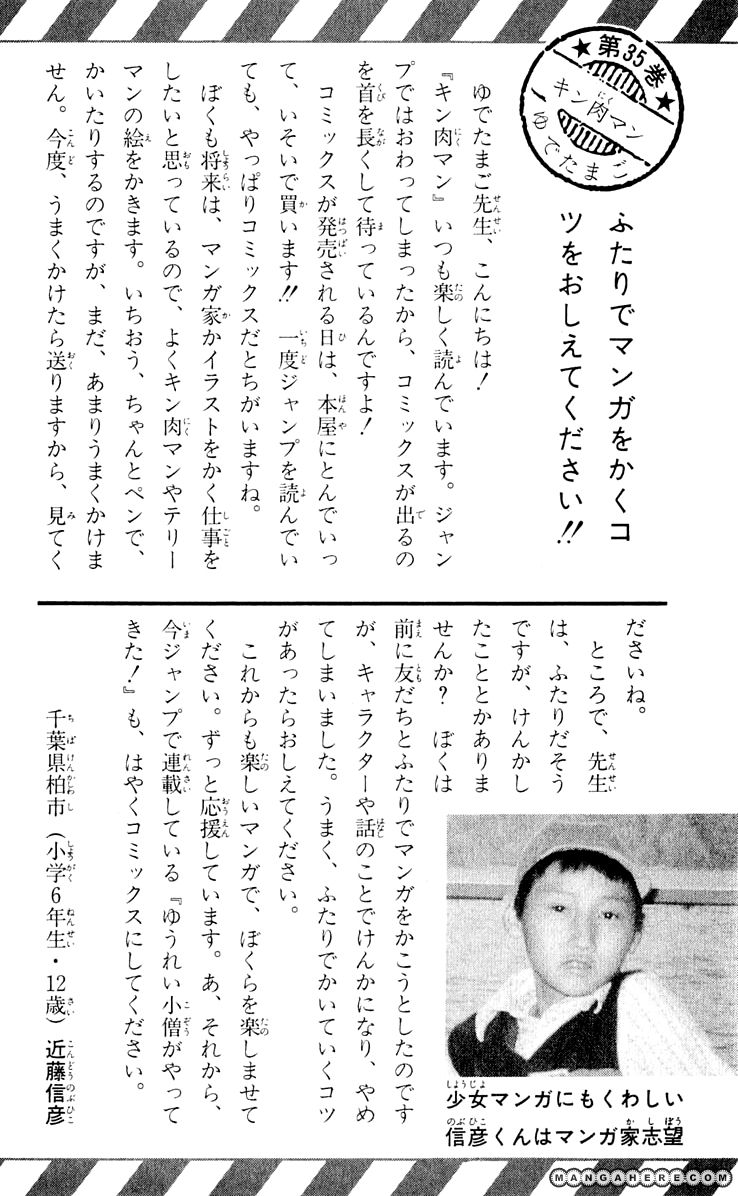 ★第35巻★
キン肉マン
ゆでたまご
ふたりでマンガをかくコ
ツをおしえてください!!
ゆでたまご先生、こんにちは!
『キン肉マン』いつも楽しく読んでいます。ジャン
プではおわってしまったから、コミックスが出るの
を首を長くして待っているんですよ!
コミックスが発売される日は、本屋にとんでいっ
て、いそいで買います!! 一度ジャンプを読んでい
ても、やっぱりコミックスだとちがいますね。
ぼくも将来は、マンガ家かイラストをかく仕事を
したいと思っているので、よくキン肉マンやテリー
マンの絵をかきます。いちおう、ちゃんとペンで、
かいたりするのですが、まだ、あまりうまくかけま
せん。今度、うまくかけたら送りますから、見てく
ださいね。
ところで、先生
は、ふたりだそう
ですが、けんかし
たこととかありま
せんか? ぼくは
前に友だちとふたりでマンガをかこうとしたのです
が、キャラクターや話のことでけんかになり、やめ
てしまいました。うまく、ふたりでかいていくコツ
があったらおしえてください。
これからも楽しいマンガで、ぼくらを楽しませて
ください。ずっと応援しています。あ、それから、
今ジャンプで連載している『ゆうれい小僧がやって
きた!』も、はやくコミックスにしてください。
千葉県柏市(小学6年生・12歳)近藤信彦
少女マンガにもくわしい
信彦くんはマンガ家志望
MANGAHERE.COM